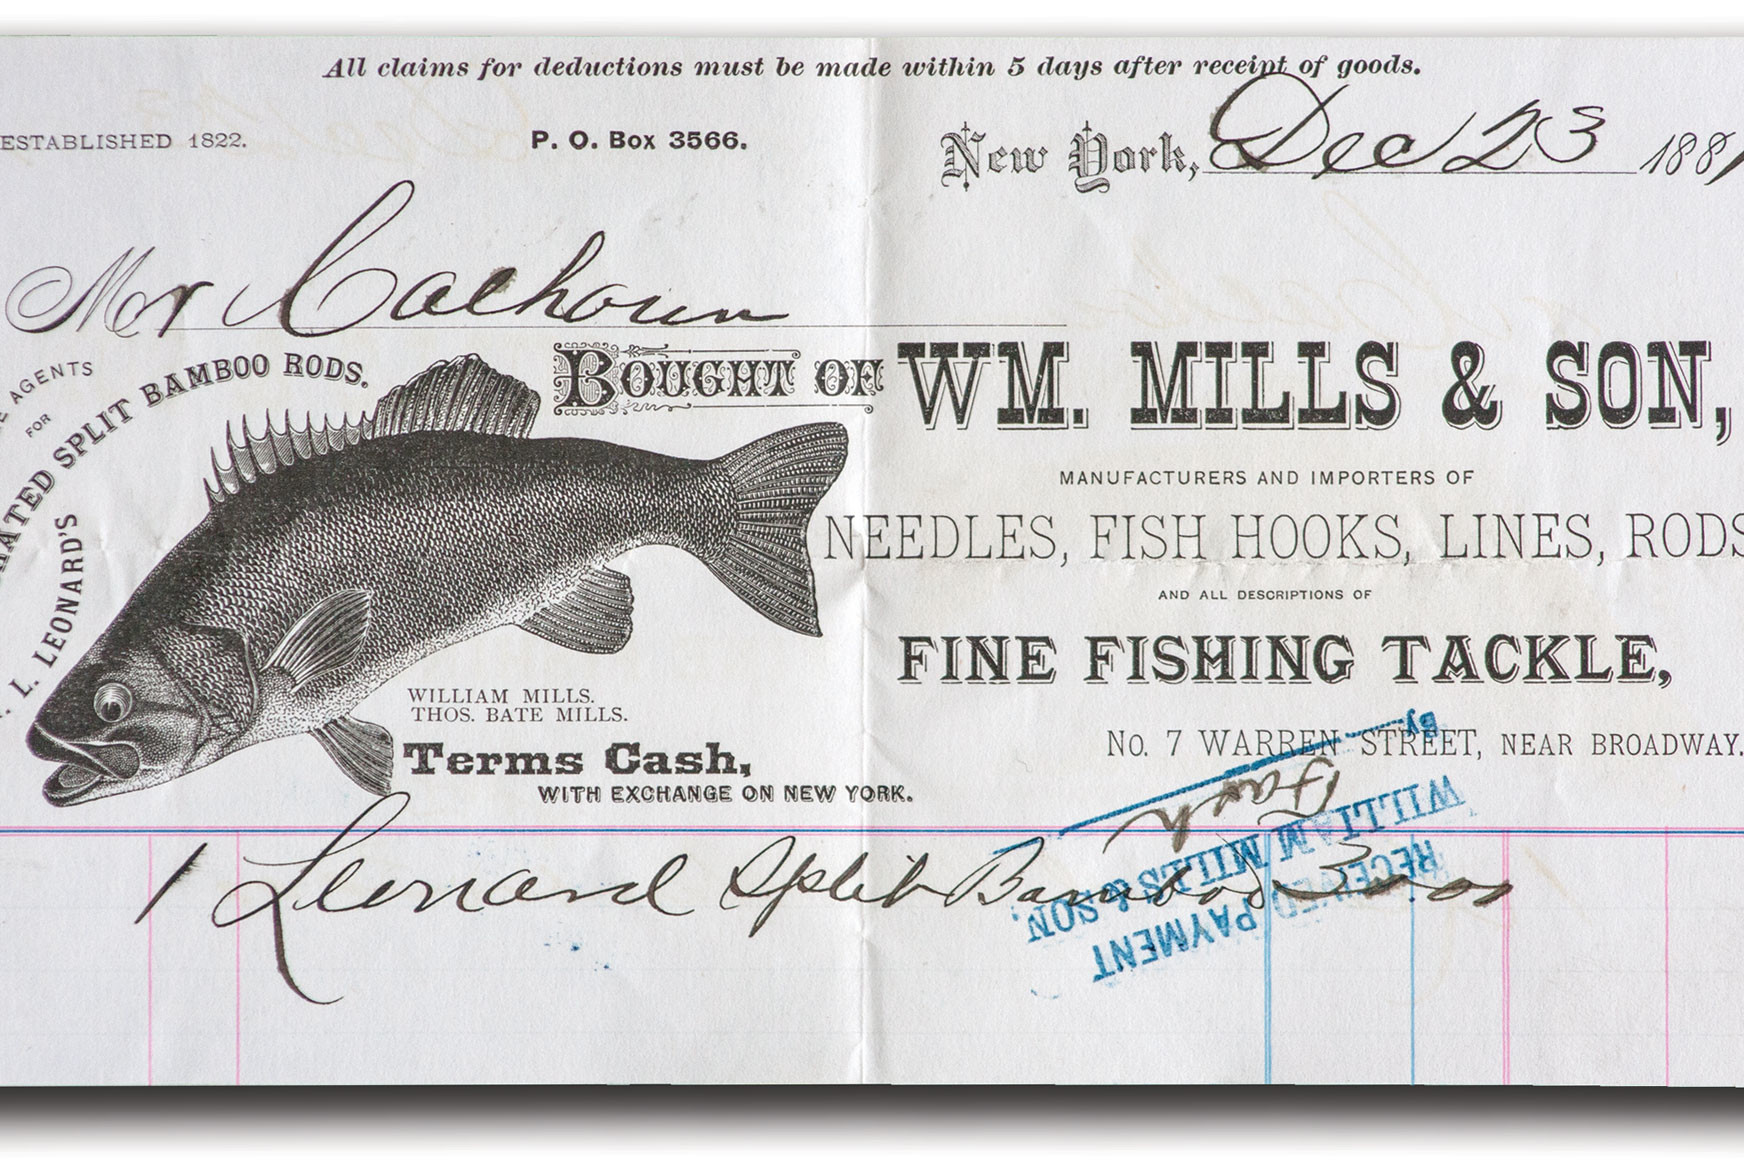 All claims for deductions must be made within 5 days after receipt of goods.
ESTABLISHED 1822.
P. O. Box 3566.
New York, Dec 23 1881
Mr Calhoun
AGENTS
FOR
SPLIT BAMBOO RODS.
L. LEONARD'S
BOUGHT OF WM. MILLS & SON,
MANUFACTURERS AND IMPORTERS OF
NEEDLES, FISH HOOKS, LINES, RODS
AND ALL DESCRIPTIONS OF
FINE FISHING TACKLE,
No. 7 WARREN STREET, NEAR BROADWAY.
WILLIAM MILLS.
THOS. BATE MILLS.
Terms Cash,
WITH EXCHANGE ON NEW YORK.
1 Leonard Split Bamboo
RECEIVED PAYMENT
WILLIAM MILLS & SON,
By